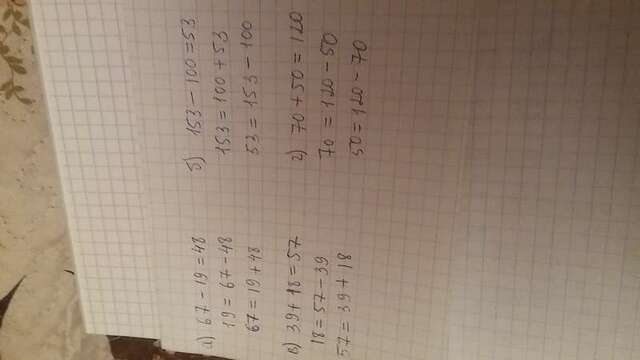 а) 67 - 19 = 48
19 = 67 - 48
67 = 19 + 48
б) 153 - 100 = 53
153 = 100 + 53
53 = 153 - 100
в) 39 + 18 = 57
18 = 57 - 39
57 = 39 + 18
г) 70 + 50 = 120
70 = 120 - 50
50 = 120 - 70